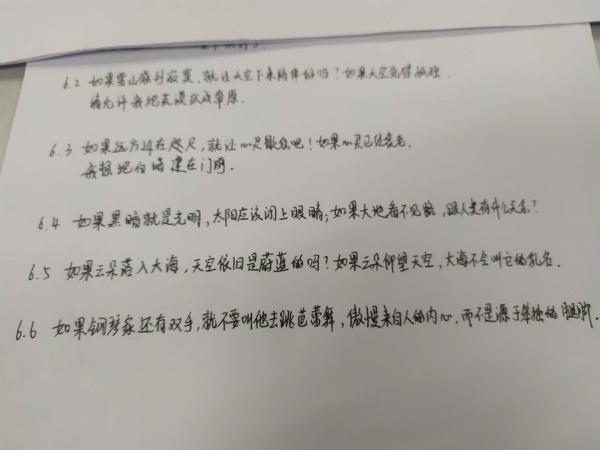 6.2 如果雪山感到寂寞,就让天空下来陪伴好吗?如果天空觉得孤独,
请允许我把荒漠改成草原.
6.3 如果远方站在咫尺,就让心灵歇息吧!如果心灵已经衰老,
我想把白塔建在门前.
6.4 如果黑暗就是光明,太阳应该闭上眼睛;如果大地看不见路,跟人类有什么关系?
6.5 如果云朵落入大海,天空依旧是蔚蓝的吗?如果云朵仰望天空,大海不会叫它的乳名.
6.6 如果钢琴家还有双手,就不要叫他去跳芭蕾舞,傲慢来自人的内心,而不是源于笨拙的腿脚.